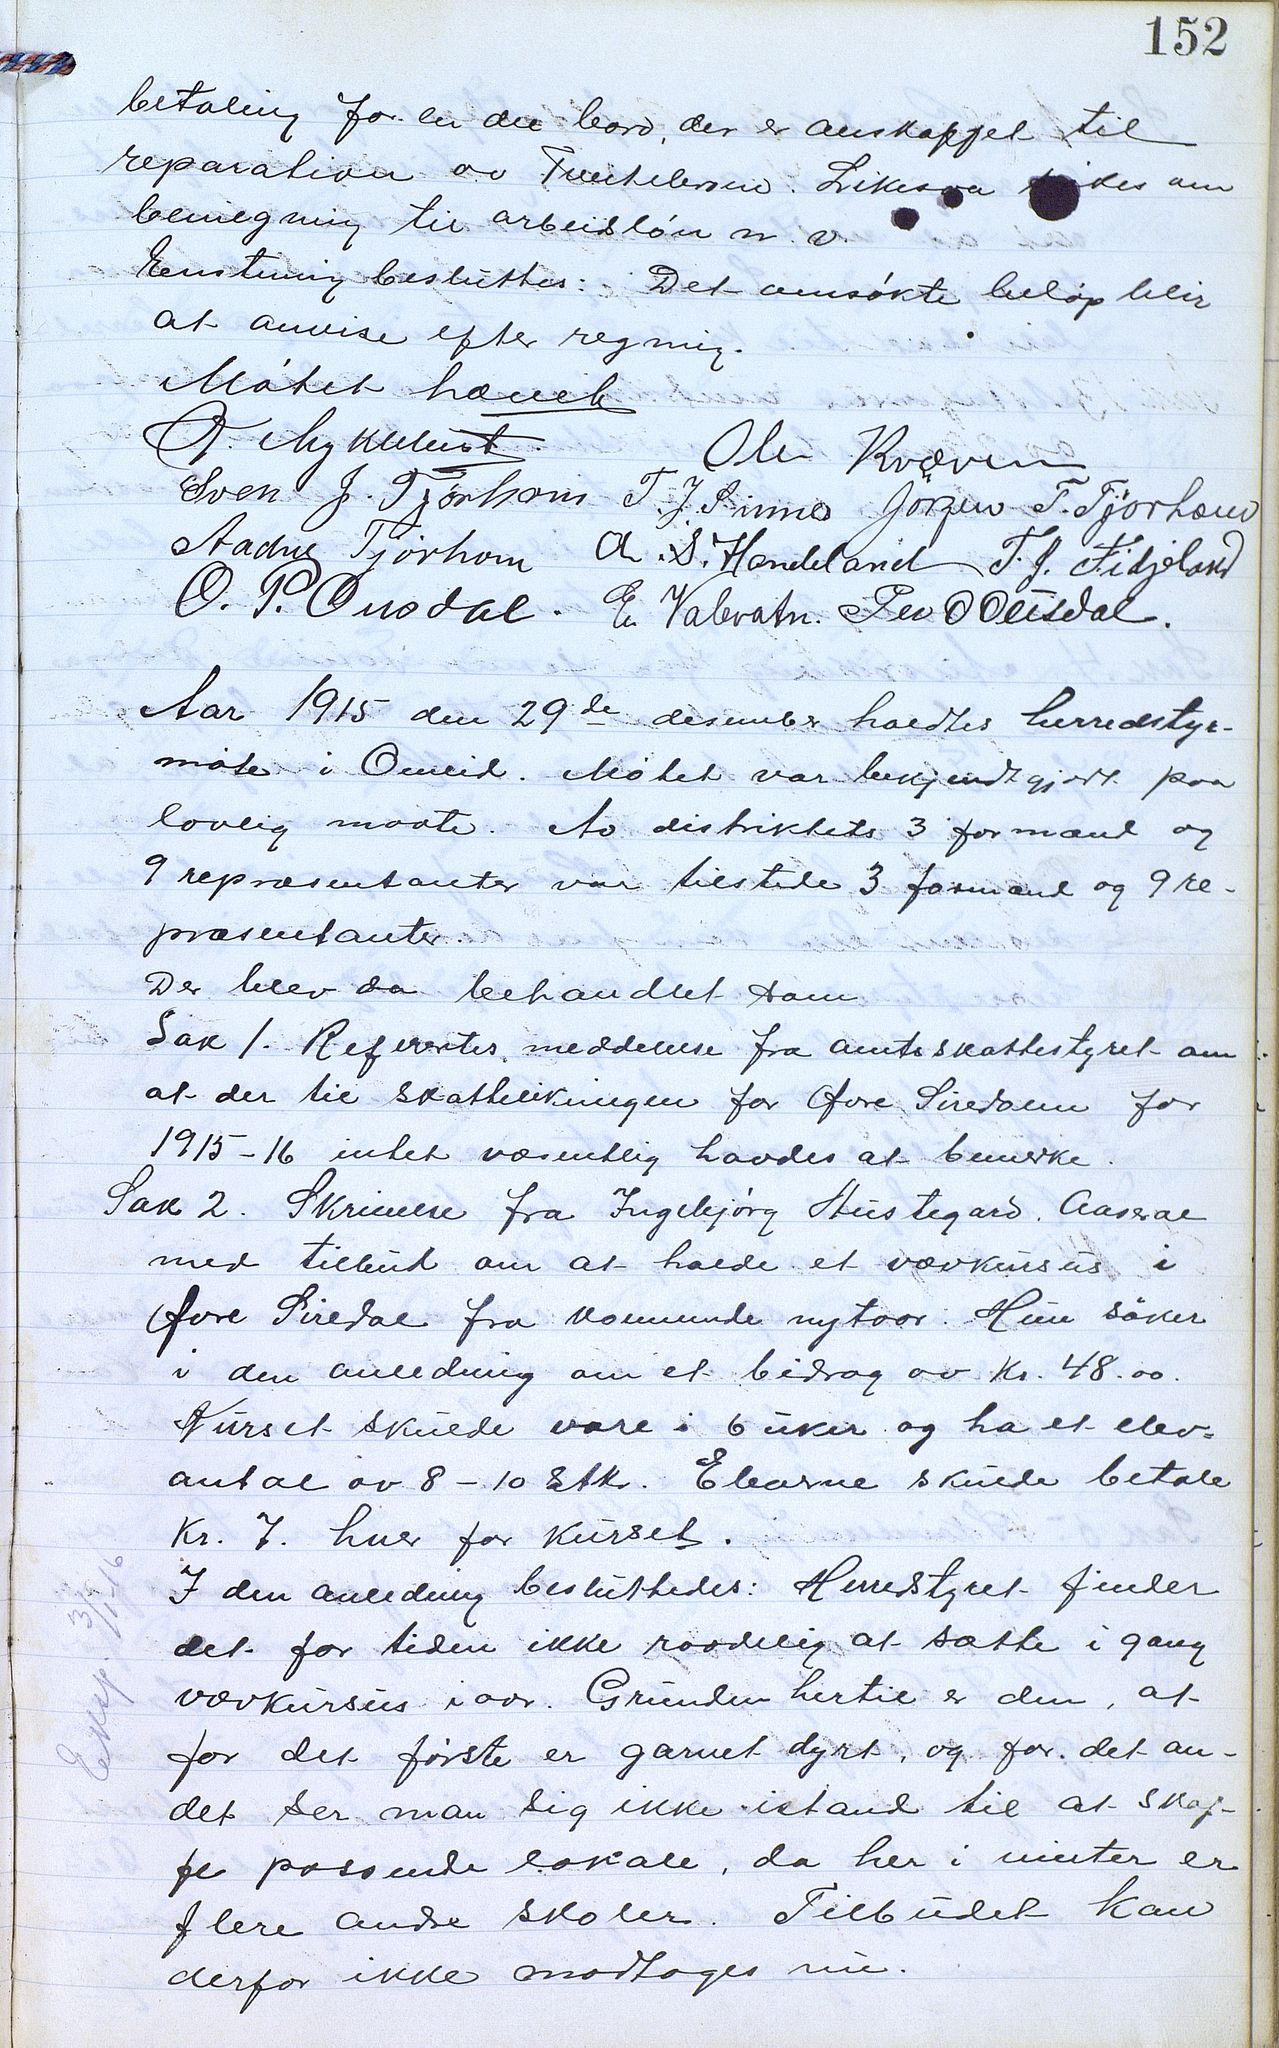 152
betaling for en del bord, der er anskaffet til
reparation av Likesaa søkes om
bevilgning til arbeidsløn m. v.
Enstemmig besluttes: Det ansøkte beløp blir
at anvise efter regning.
Møtet hævet
O. Myklebust Ole Kvæven
Sven J. Tjørhom T. J. Sinnes Jørgen T. Tjørhom
Aadne Tjørhom A. S. Handeland T. J. Fidjeland
O. P. Ousdal. E. Valevatn. Per O Ousdal.
Aar 1915 den 29de desember holdtes herredstyr-
møte i Omlid. Møtet var bekjendtgjort paa
lovlig maate. Av distriktets 3 formænd og
9 repræsentanter var tilstede 3 formænd og 9 re-
præsentanter.
Der blev da behandlet som
Sak 1. Refereertes meddelelse fra amtsskattestyret om
at der til skattelikningen for Øvre Siredalen for
1915-16 intet væsentlig havdes at bemerke.
Sak 2. Skrivelse fra Ingebjørg Hustegard, Aaseral
med tilbud om at holde et vævkursus i
Øvre Siredal fra kommende nytaar. Hun søker
i den anledning om et bidrag av Kr. 48.00.
Kurset skulde vare i 6 uker og ha et elev-
antal av 8-10 Stk. Eleverne skulde betale
Kr. 7. hver for kurset.
I den anledning besluttedes: Herredstyret finder
det for tiden ikke raadelig at sætte i gang
vævkursus i aar. Grunden hertil er den, at
for det første er garnet dyrt, og for det an-
det ser man sig ikke istand til at skaf-
fe passende lokale, da her i vinter er
flere andre skoler. Tilbudet kan
derfor ikke modtages nu.
Eksp. 3/1-16